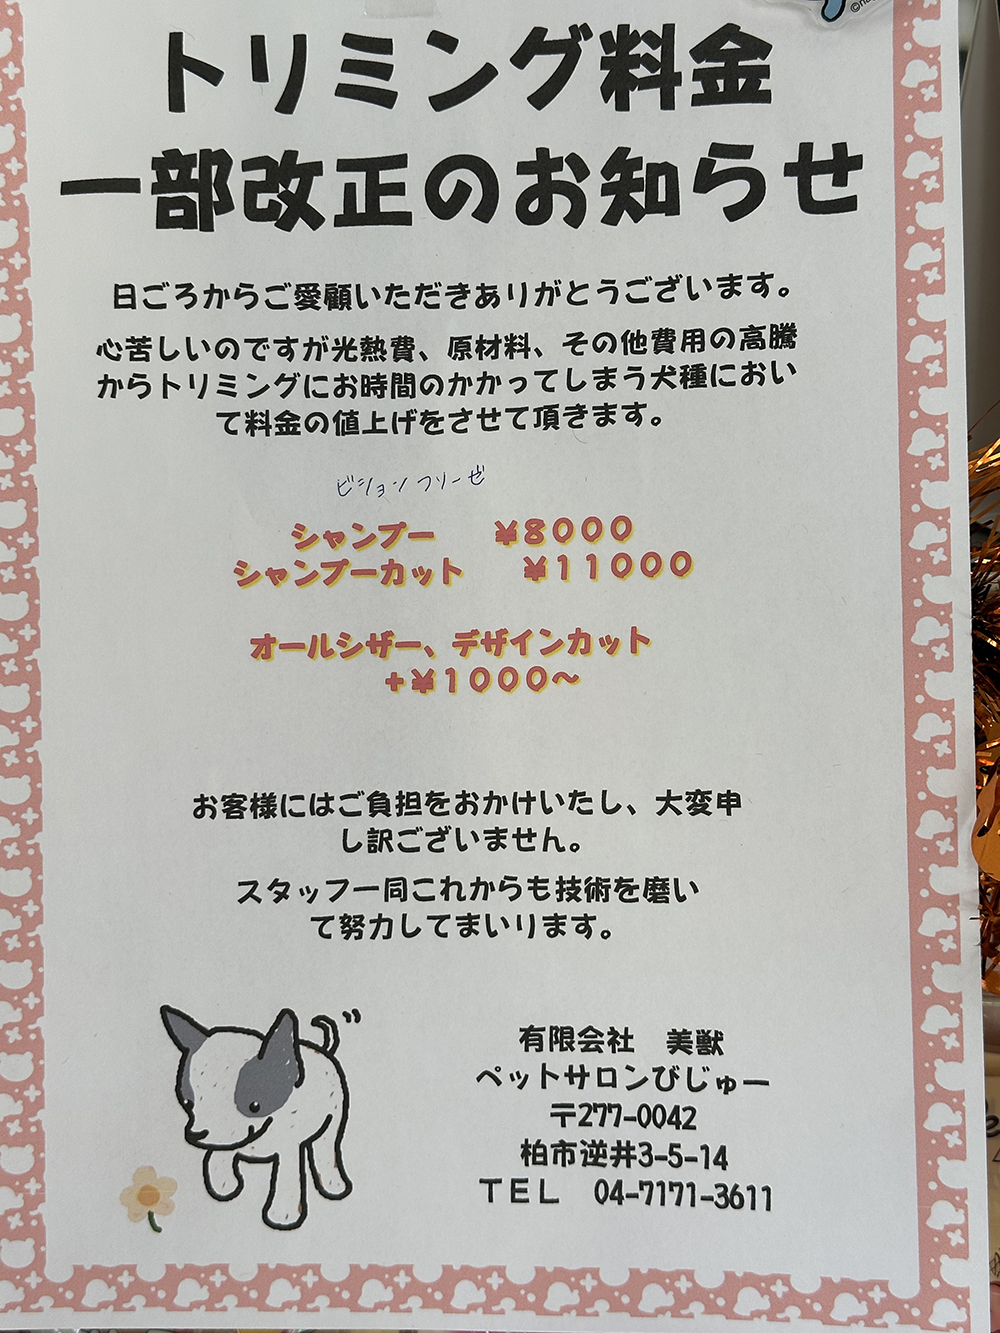 トリミング料金
一部改正のお知らせ
日ごろからご愛顧いただきありがとうございます。
心苦しいのですが光熱費、原材料、その他費用の高騰
からトリミングにお時間のかかってしまう犬種におい
て料金の値上げをさせて頂きます。
ビションフリーゼ
シャンプー ¥8000
シャンプーカット ¥11000
オールシザー、デザインカット
+¥1000~
お客様にはご負担をおかけいたし、大変申
し訳ございません。
スタッフ一同これからも技術を磨い
て努力してまいります。
有限会社 美獣
ペットサロンびじゅー
〒277-0042
柏市逆井3-5-14
TEL 04-7171-3611